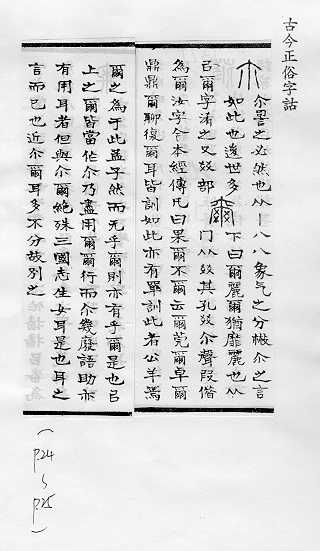 古今正俗字詁
尒䛐之必然也从丨八八象气之分㪔尒之言
如此也後世多 爾 下曰爾麗爾猶靡麗也从
㠯爾字淆之㸚部 冂从㸚其孔㸚尒聲叚偕
為爾汝字今本經傳凡曰果爾不爾云爾莞爾卓爾
鼎鼎爾聊復爾耳皆訓如此亦有單訓此者公羊焉
爾之為于此孟子然而无乎爾則亦有乎爾是也㠯
上之爾皆當作尒乃盡用爾爾行而尒幾廢語助亦
有用耳者但與尒爾絕殊三國志生女耳是也耳之
言而已也近尒爾耳多不分故別之
(P24~P25)